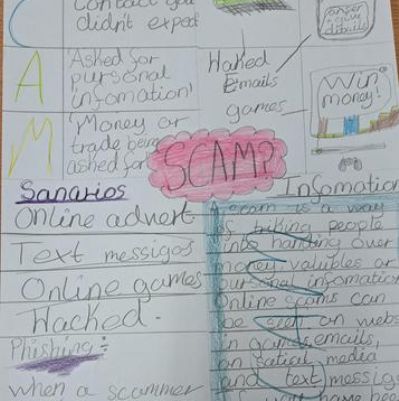 C
Contact you
didn't exped
A
Asked for
pursonal
'infomation'
M
'Money or
trade being
asked for
Haked
Emails
games
enter
your
details
Win
money!
SCAM?
Sanarios
Online advert
Text messigos
Online games
Hacked.
Phishing:
when a scammer
Infomation
A scam is a way
of triking people
into handing over
money, valubles or
pursonal infomation
Online scams can
be seen on webs
in games, emails,
on satial media
and text messige